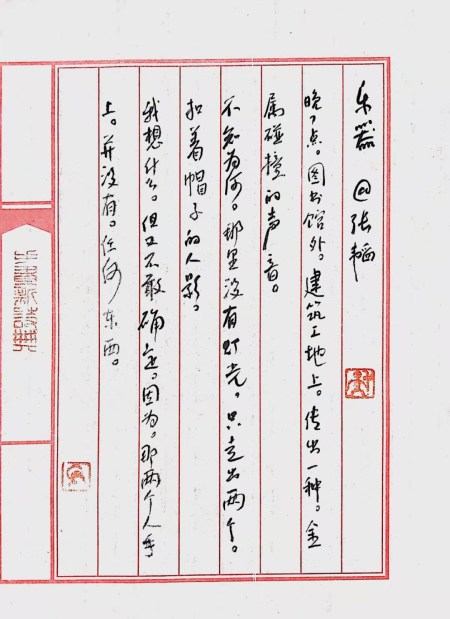 乐器 @张韬
晚7点。图书馆外。建筑工地上。传出一种。金
属碰撞的声音。
不知为何。那里没有灯光。只走出两个。
扣着帽子的人影。
我想什么。但又不敢确定。因为。那两个人手
上。并没有。任何东西。